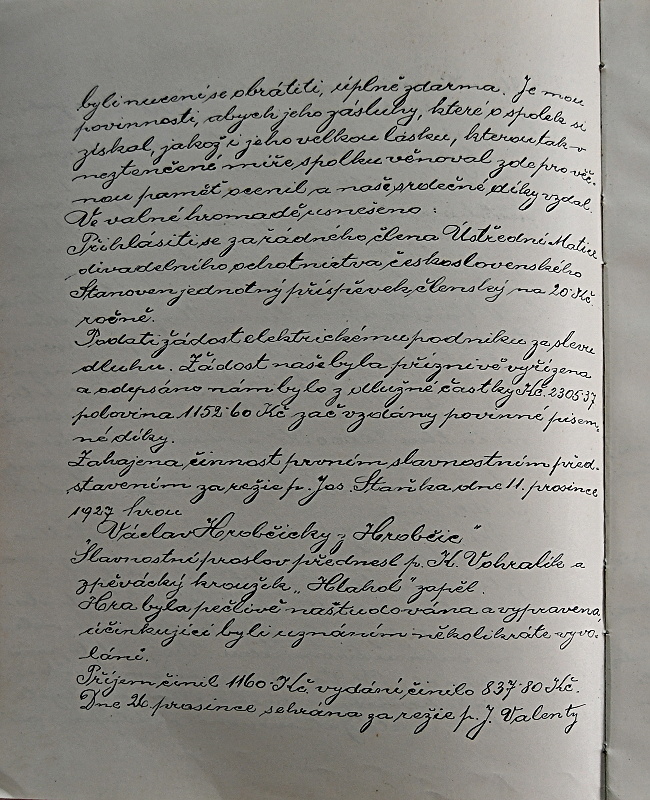 byli nuceni se obrátiti, úplně zdarma. Je mou
povinností, abych jeho zásluhy, které o spolek si
získal, jakož i jeho velkou lásku, kterou tak v
neztenčené míře spolku věnoval zde pro věč-
nou paměť ocenil a naše srdečné díky vzdal.
Ve valné hromadě usneseno :
Přihlásiti se za řádného člena Ústřední Matice
divadelního ochotnictva československého
Stanoven jednotný příspěvek členský na 20 Kč.
ročně.
Podati žádost elektrickému podniku za slevu
dluhu. Žádost naše byla příznivě vyřízena
a odepsáno nám bylo z dlužné částky Kč. 2305·37
polovina 1152·60 Kč začež vzdány povinné písem-
né díky.
Zahájena činnost prvním slavnostním před-
stavením za režie p. Jos. Staňka dne 11. prosince
1927 hrou
Václav Hrobčický z Hrobčic"
Slavnostní proslov přednesl p. K. Vohralík a
zpěvácký kroužek „Hlahol" zapěl.
Hra byla pečlivě naštudována a vypravena,
účinkující byli uznáním několikráte vyvo-
láni.
Příjem činil 1160·Kč, vydání činilo 837·80 Kč.
Dne 26. prosince sehrána za režie p. J. Valenty